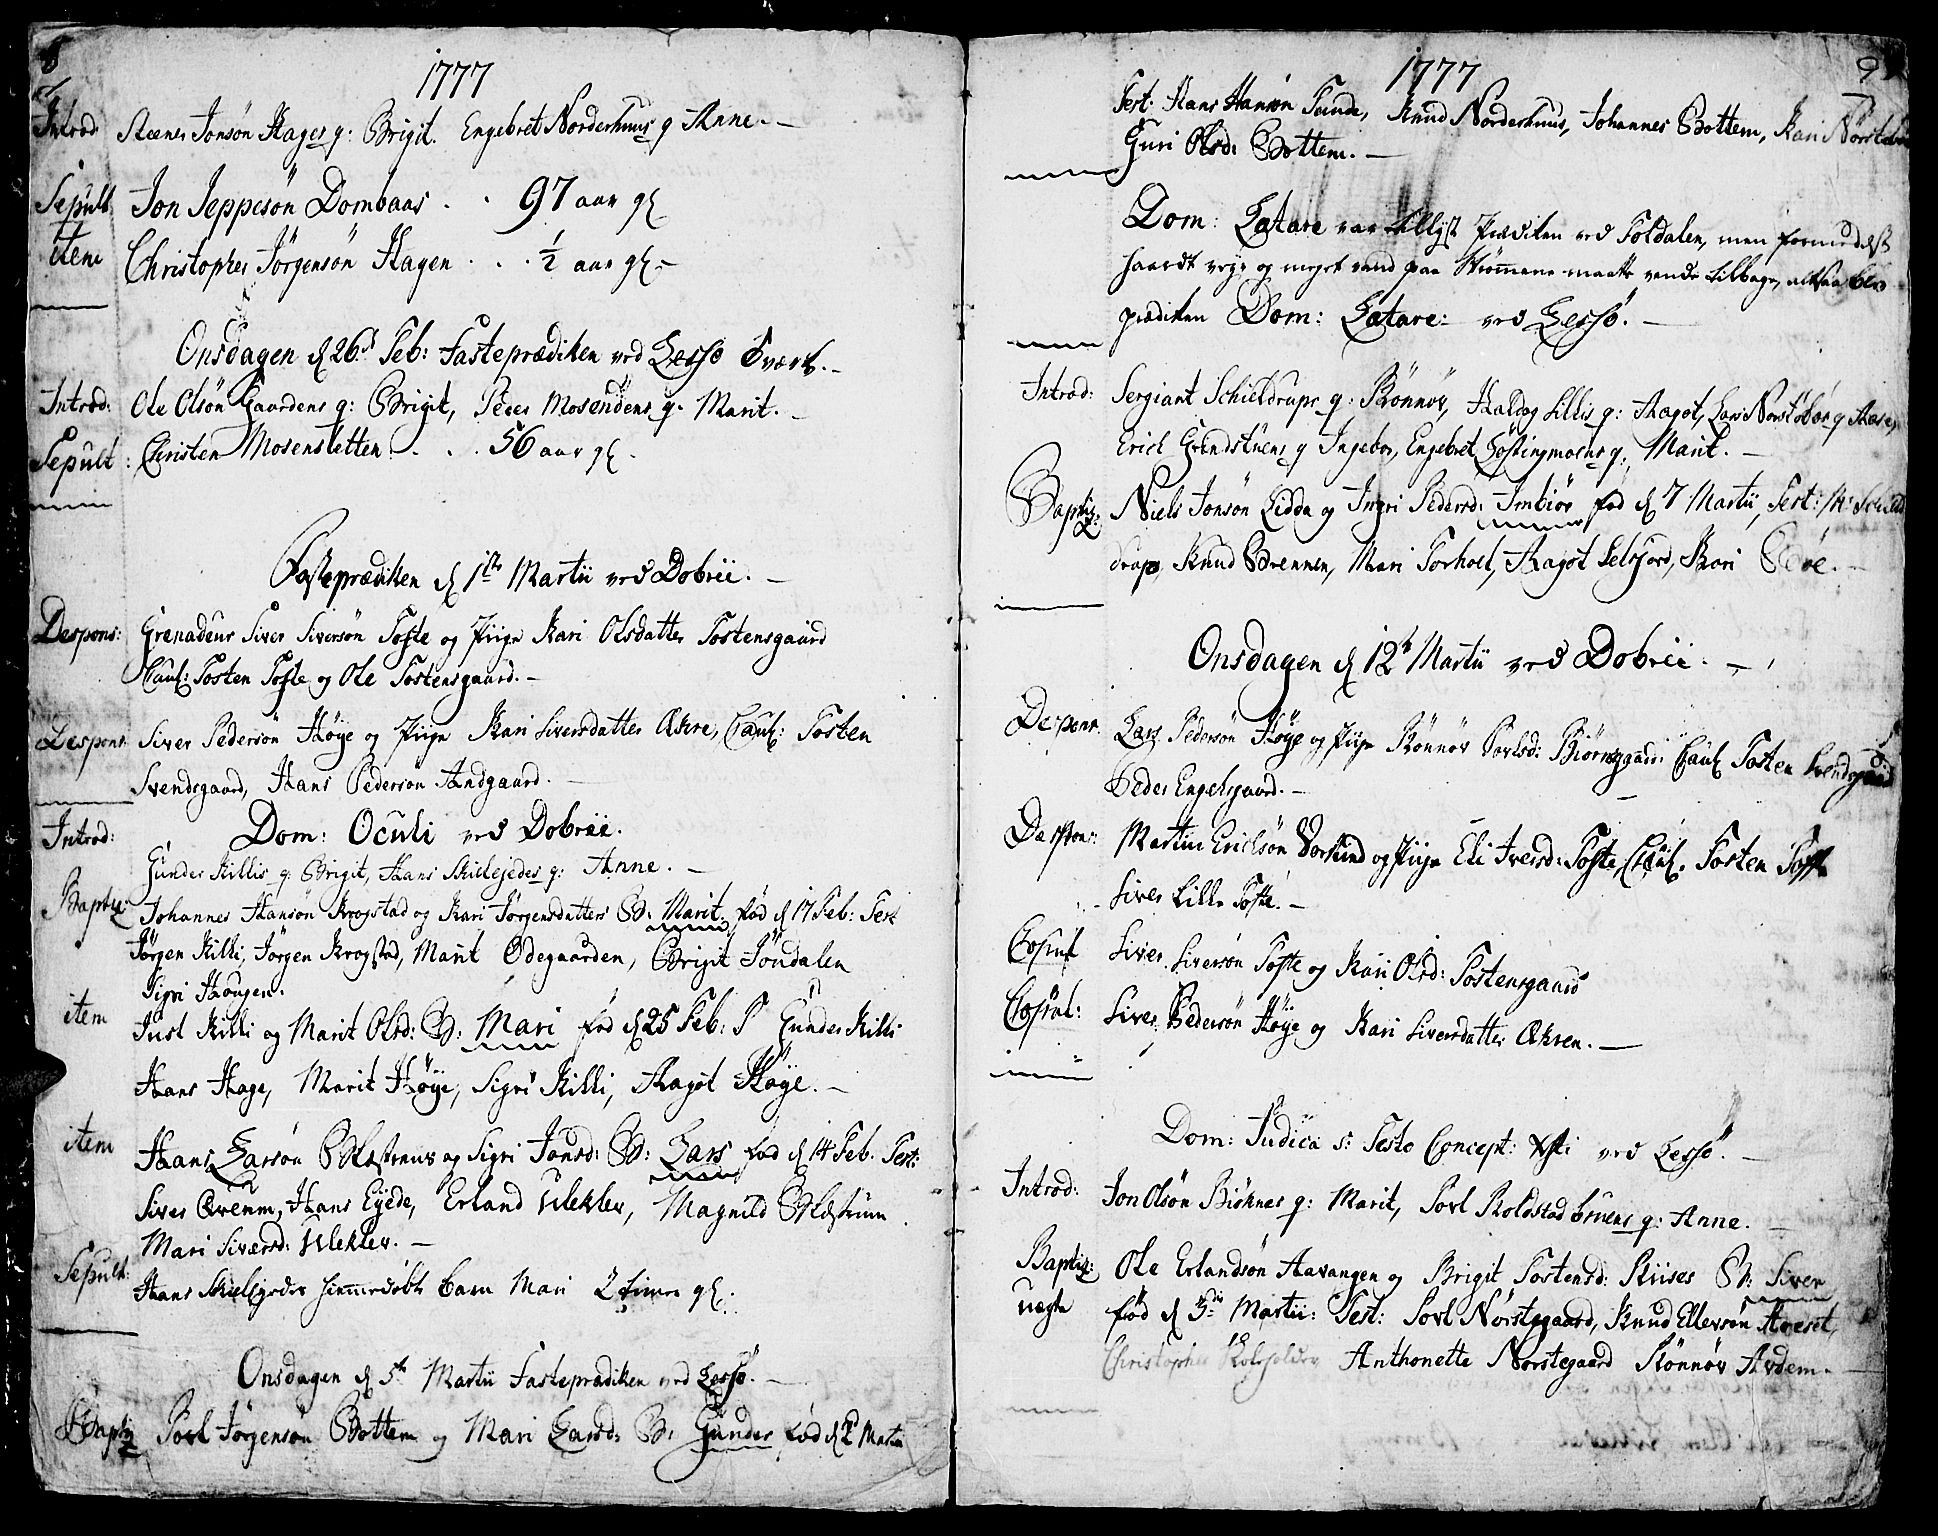 8
1777
Introd: Steener Jonsön Hages q: Brigit. Engebret Norderhuus q Anne.
Sepult Jon Jeppesön Dombaas . . 97 aar gl
item Christopher Jörgensön Hagen . . . ½ aar gl
Onsdagen d 26d Feb: Fasteprædiken ved Lessö Værk.
Introd: Ole Olsön Gaardens q: Brigit, Peder Mosendens q. Marit.
Sepult: Christen Mosensletten . . . 56 aar gl.
Fasteprædiken d 1ste Martii ved Dobrii.
Despons: Grenadeur Siver Siversön Tofte og Piige Kari Olsdatter Tostensgaard
Cauf: Tosten Tofte og Ole Tostensgaard.
Despons Siver Pedersön Höye og Piige Kari Siversdatter Akre, Cauf: Tosten
Svendsgaard, Hans Pedersön Andgaard.
Dom: Oculi ved Dobrii.
Introd: Gunder Killis q: Brigit, Hans Skielsjedes q: Anne.
Baptiz: Johannes Hansön Krogstad og Kari Jörgensdatters B: Marit. fød d 17 Feb: Test
Jörgen Killi, Jörgen Krogstad, Marit Ödegaarden, Brigit Jöndalen
Sigri Hougen.
item Just Killi og Marit Olsd: B: Mari fød d 25 Feb: T Gunder Killi
Hans Hage, Marit Höye, Sigri Killi, Aagot Höye.
item Hans Larsön og Sigri Jonsd: B: Lars fød d 14 Feb. Test:
Siver Qvenm, Hans Eyede, Erland Uleklev, Magnild
Mari Siversd: Uleklev.
Sepult: Hans Skielsjedes hiemmedøbt barn Mari 2 timer gl.
Onsdagen d 5te Martii Fasteprædiken ved Lessö.
Baptiz Povl Jörgensön Bottem og Mari Larsd: B: Gunder fød d 2d Martii
9
1777
Test: Hans Hansön Tunde, Knud Norderhuus, Johannes Bottem, Kari
Guri Olsd: Bottem.
Dom: Lætare var tillyst Prædiken ved Foldalen, men formedelst
haardt veyr og meget vand paa Strömmene maatte vende tilbage, altsaa blev
prædiken Dom: Lætare: ved Lessö.
Introd: Sergiant Schieldrups q: Rönnov, Haldog Lillis q: Aagot, Lars Norstöboe q Aase,
Erich Grendstuens q Ingebor, Engebret q: Marit.
Baptiz: Niels Jonsön Lidda og Ingri Pedersd: Imbiör fød d 7 Martii, Test: Mr Schield
drup, Knud Brennen, Mari Torholt, Aagot Selsjord, Kari
Onsdagen d 12te Martii ved Dobrii.
Despons. Lars Pedersön Höye og Piige Rönnov Povlsd: Biörnsgaard. Cauf Tosten Svendsgaard
Peder Engelsgaard.
Despon: Martin Erichsön Vorkind og Piige Eli Iversd: Tofte, Cauf. Tosten Tofte
Siver Lille Tofte.
Copul Siver Siversön Tofte og Kari Olsd: Tostensgaard
Copul: Siver Pedersön Höye og Kari Siversdatter Akren.
Dom: Judica s: Festo Concept: Xsti ved Lessö.
Introd: Jon Olsön Biöknes q: Marit, Povl Roldstadbruens q: Anne.
Baptiz: Ole Erlandsön Aavangen og Brigit Tostensd: Riises B: Siver
uægte fød d 3die Martii: Test: Povl Norstegaard, Knud Ellevsön
Christopher Skoleholder Anthonette Norstegaard Rönnov Ardem.